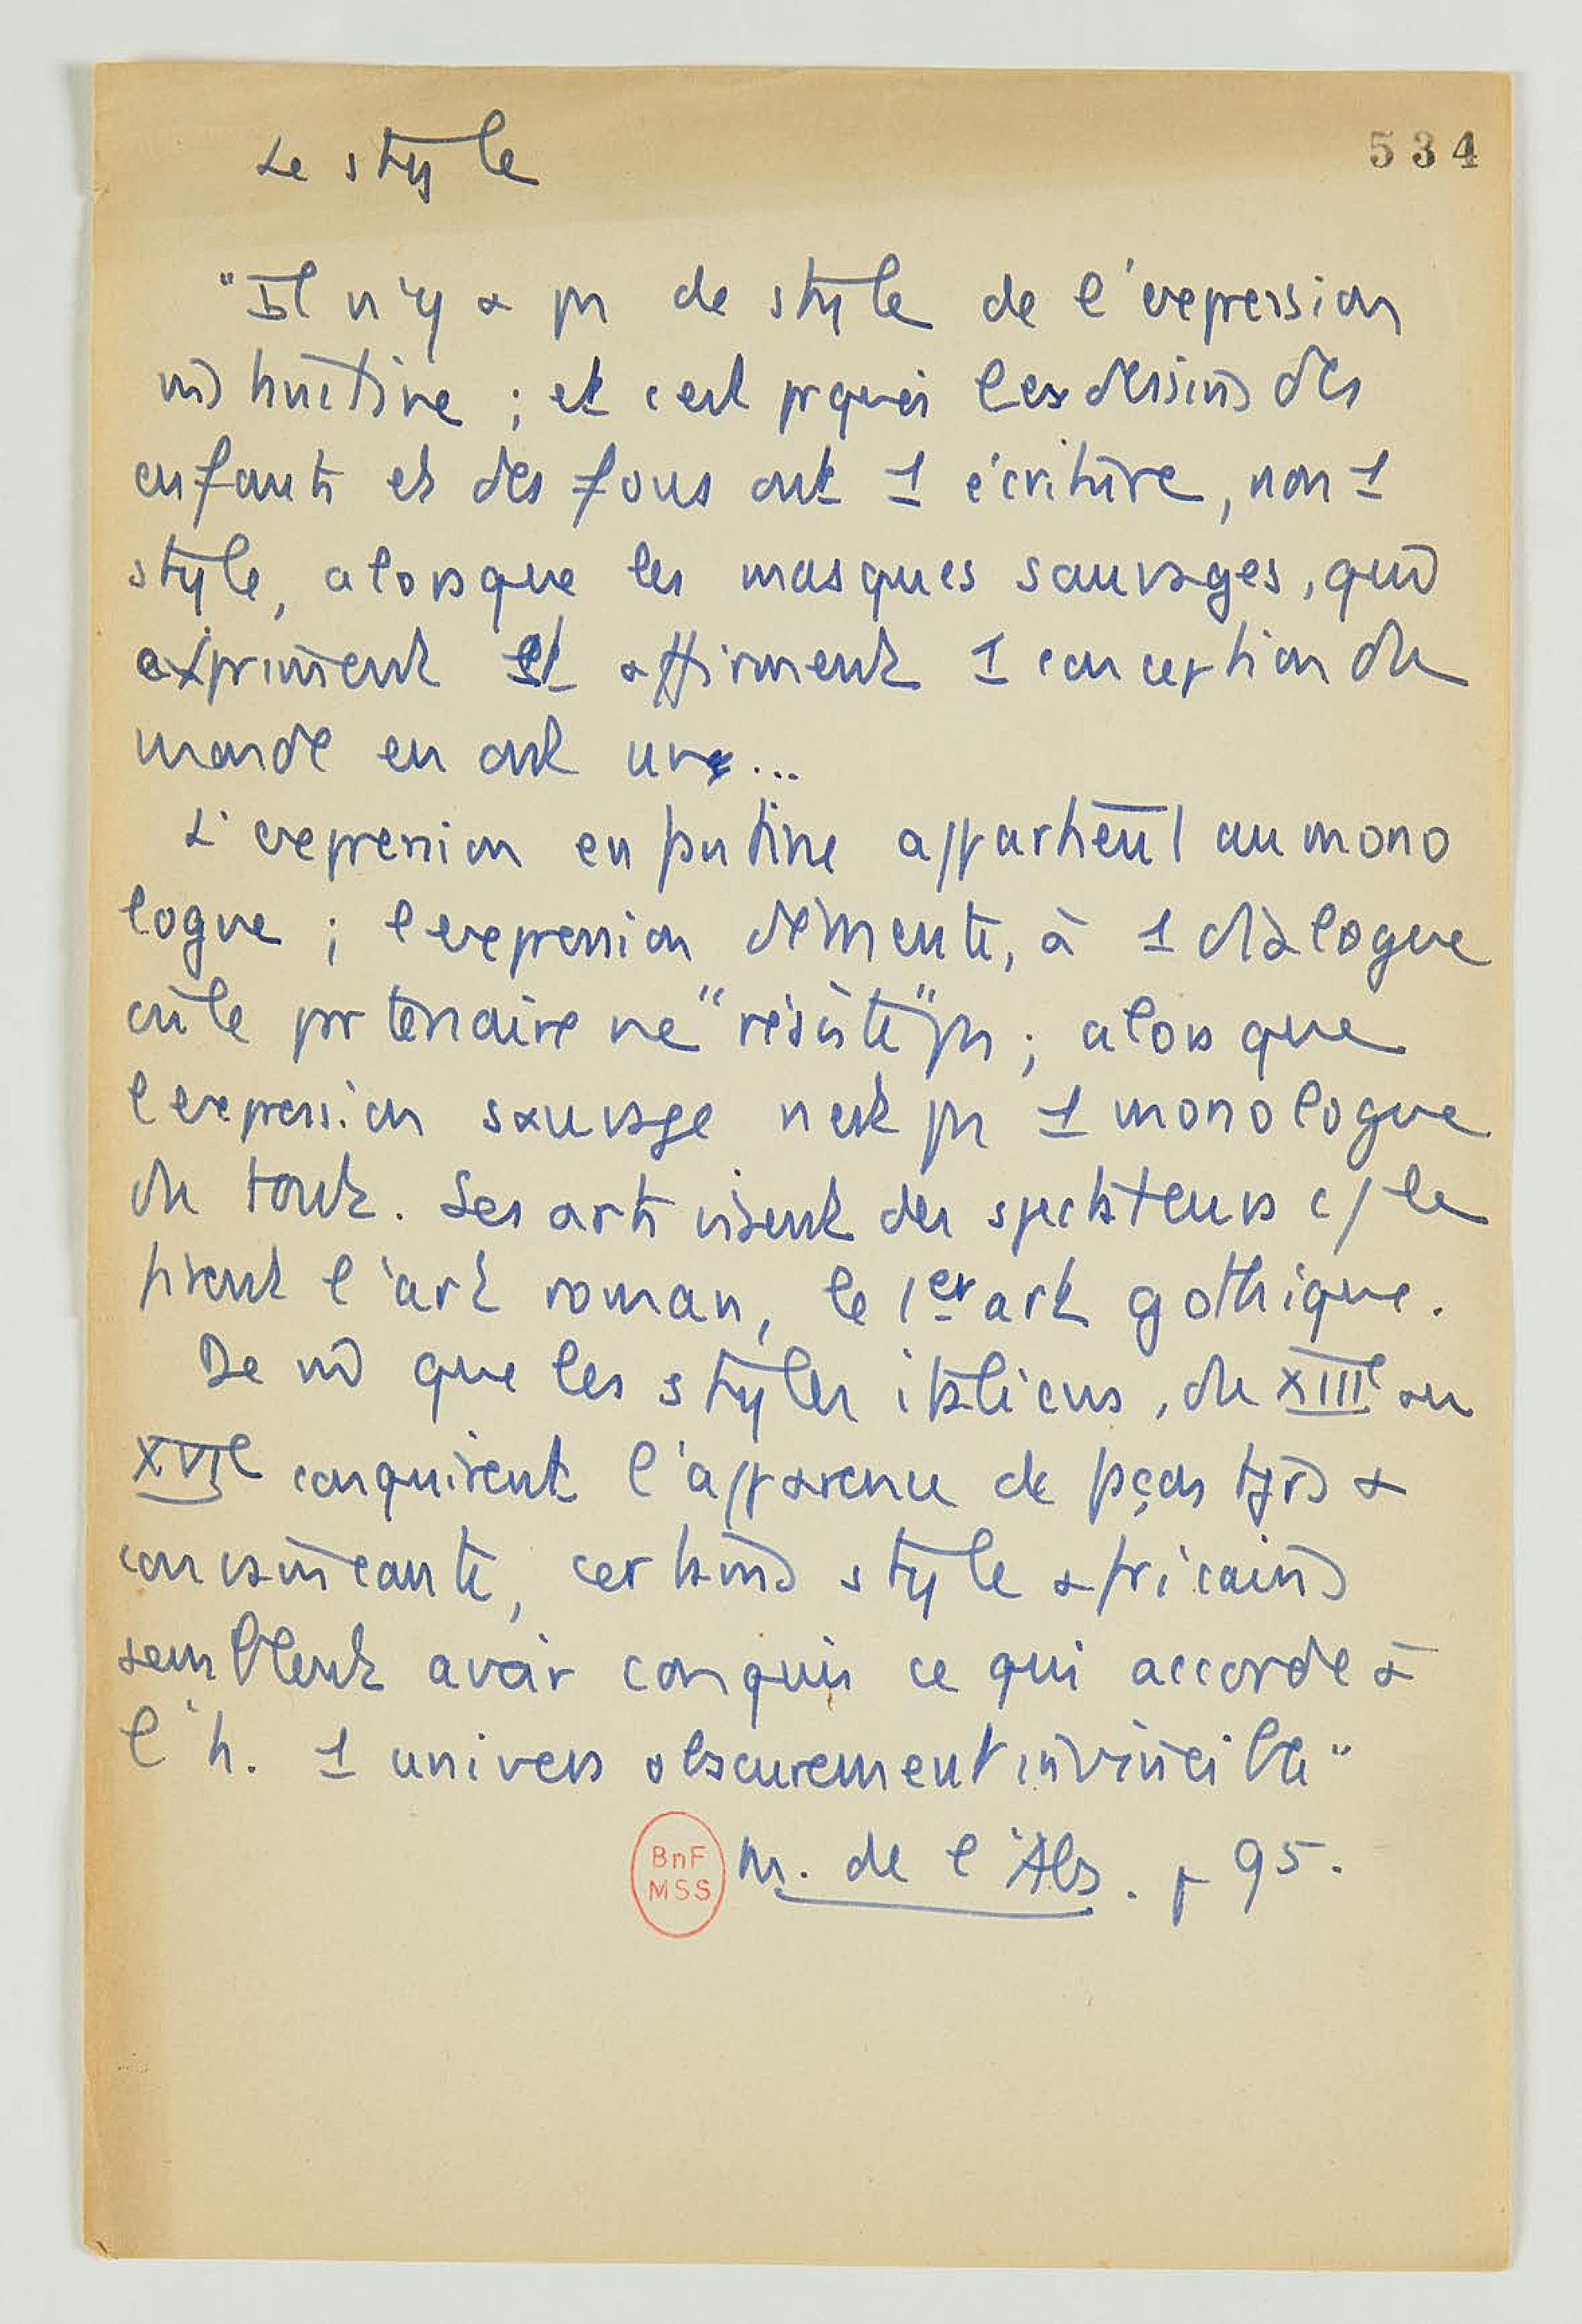 Le style
534
"Il n'y a pas de style de l'expression
instinctive ; et c'est pr quoi les dessins des
enfants et des fous ont 1 écriture, non 1
style, alors que les masques sauvages, qui
expriment et affirment 1 conception du
monde en ont un...
L'expression enfantine appartient au mono
logue ; l'expression démente, à 1 dialogue
où le partenaire ne "résiste" pas ; alors que
l'expression sauvage n'est pas 1 monologue
du tout. Ses arts visent des spectateurs c/ le
firent l'art roman, le 1er art gothique.
De m que les styles italiens, du XIIIe au
XVIe conquirent l'apparence de façon tjrs +
convaincante, certains style africains
semblent avoir conquis ce qui accorde à
l'h. 1 univers obscurement invincible"
BnF
MSS
M. de l'Abs. p 95.